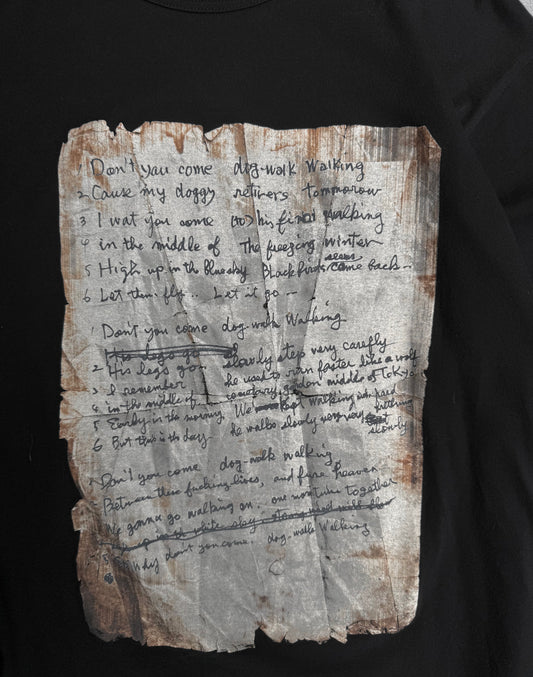 1 Don't you come dog-walk Walking
2 Cause my doggy retirers tommorow
3 I wat you come (to) his final walking
4 in the middle of The freezing winter
5 High up in the blue sky Black birds seems come back --
6 Let them fly .. Let it go --
1 Don't you come dog-walk Walking
2 His legs go -- slowly step very carefly
3 I remember he used to run faster like a wolf
4 in the middle of cemetary, garden middle of Tokyo
5 Early in the morning We walking
6 But this is the day he walks slowly very very slowly
Don't you come dog-walk walking
Between these fucking lives, and fire heaven
gonna go walking on. one more time together
don't you come, dog-walk Walking